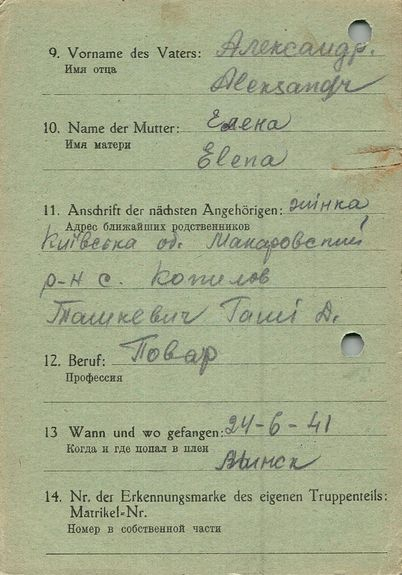 9. Vorname des Vaters: Александр.
Имя отца
Aleksandr
10. Name der Mutter: Елена
Имя матери
Elena
11. Anschrift der nächsten Angehörigen: жінка
Адрес ближайших родственников
Київська об. Макаровский
р-н с. Копилов
Ташкевич Гаші Д.
12. Beruf: Повар
Профессия
13 Wann und wo gefangen: 24-6-41
Когда и где попал в плен
Минск
14. Nr. der Erkennungsmarke des eigenen Truppenteils:
Matrikel-Nr.
Номер в собственной части